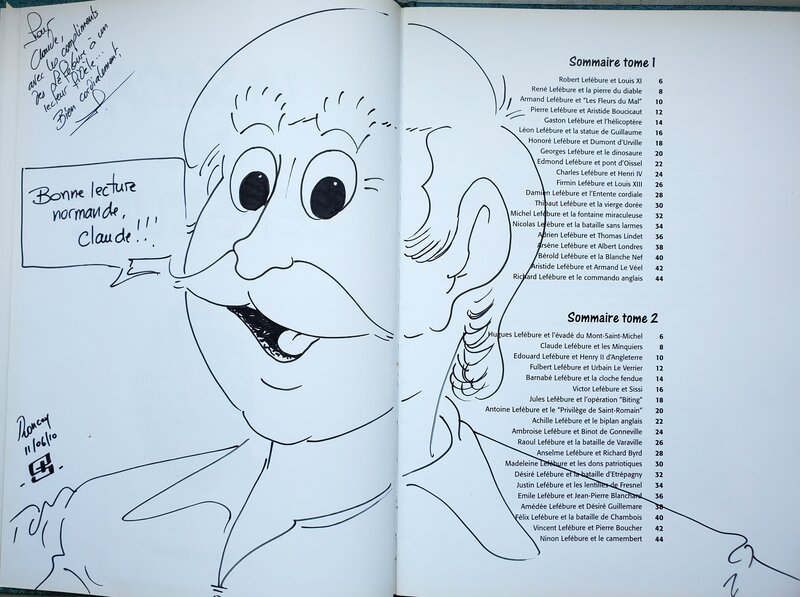 Pour
Claude,
avec les compliments
des Lefébure à un
lecteur fidèle...
Bien cordialement,
Bonne lecture
normande,
Claude!!!
11/06/10
Sommaire tome 1
Robert Lefébure et Louis XI 6
René Lefébure et la pierre du diable 8
Armand Lefébure et "Les Fleurs du Mal" 10
Pierre Lefébure et Aristide Boucicaut 12
Gaston Lefébure et l'hélicoptère 14
Léon Lefébure et la statue de Guillaume 16
Honoré Lefébure et Dumont d'Urville 18
Georges Lefébure et le dinosaure 20
Edmond Lefébure et pont d'Oissel 22
Charles Lefébure et Henri IV 24
Firmin Lefébure et Louis XIII 26
Damien Lefébure et l'Entente cordiale 28
Thibaut Lefébure et la vierge dorée 30
Michel Lefébure et la fontaine miraculeuse 32
Nicolas Lefébure et la bataille sans larmes 34
Adrien Lefébure et Thomas Lindet 36
Arsène Lefébure et Albert Londres 38
Bérold Lefébure et la Blanche Nef 40
Aristide Lefébure et Armand Le Véel 42
Richard Lefébure et le commando anglais 44
Sommaire tome 2
Hugues Lefébure et l'évadé du Mont-Saint-Michel 6
Claude Lefébure et les Minquiers 8
Edouard Lefébure et Henry II d'Angleterre 10
Fulbert Lefébure et Urbain Le Verrier 12
Barnabé Lefébure et la cloche fendue 14
Victor Lefébure et Sissi 16
Jules Lefébure et l'opération "Biting" 18
Antoine Lefébure et le "Privilège de Saint-Romain" 20
Achille Lefébure et le biplan anglais 22
Ambroise Lefébure et Binot de Gonneville 24
Raoul Lefébure et la bataille de Varaville 26
Anselme Lefébure et Richard Byrd 28
Madeleine Lefébure et les dons patriotiques 30
Désiré Lefébure et la bataille d'Etrépagny 32
Justin Lefébure et les lentilles de Fresnel 34
Emile Lefébure et Jean-Pierre Blanchard 36
Amédée Lefébure et Désiré Guillemare 38
Félix Lefébure et la bataille de Chambois 40
Vincent Lefébure et Pierre Boucher 42
Ninon Lefébure et le camembert 44